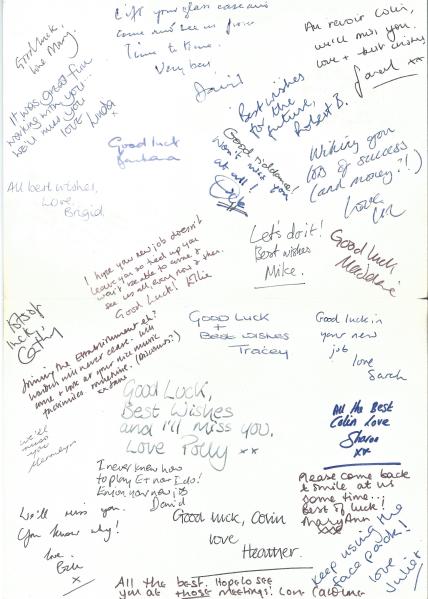 Good luck,
love Mary.
Lift your glass case and
come and see us from
Time to time.
Very best
David
Au revoir Colin,
we'll miss you.
love + best wishes
Sarah xx
It was great fun
working with you...
We'll miss you
love
Linda
x
Best wishes
for the
future,
Robert B.
Good luck
Barbara
Good riddance!
Won't miss you
at all!
Wishing you
lots of success
(and money?!)
Love
All best wishes,
Love
Brigid
I hope your new job doesn't
leave you so tied up you
won't be able to come &
see us all every now & then.
Good Luck! Ellie
Let's do it!
Best wishes
Mike.
Good luck
Madeleine
Lots of
luck!
Cathy
Good Luck
+
Best Wishes
Tracey
Good luck in
your new
job
love
Sarah
Joining the Establishment eh?
will never cease. Will
come & look at your music
machine.
Good Luck,
Best Wishes
and I'll miss you.
Love Polly xx
All the Best
Colin Love
Sharon
xx
We'll
miss
you
I never knew how
to play Et nor I do!
Enjoy your new job
David
Please come back
& smile at us
some time...
Best of luck!
MaryAnn
xxx
We'll miss you.
You know why!
love.
x
Good luck, Colin
love
Heather.
Keep using the
face pack!
love
Juliet
All the best. Hope to see
you at those meetings! Love Caroline